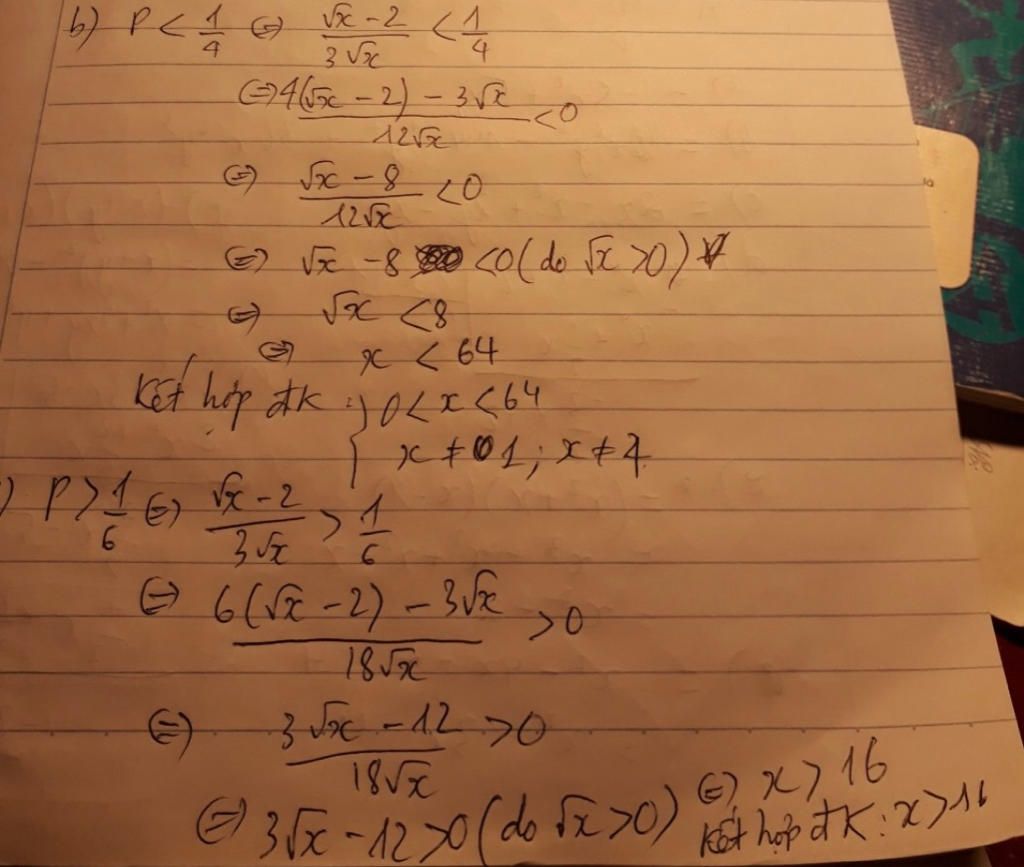 b) P < 1/4 ⇔ (√x - 2)/(3√x) < 1/4
⇔ (4(√x - 2) - 3√x)/(12√x) < 0
⇔ (√x - 8)/(12√x) < 0
⇔ √x - 8 < 0 (do √x > 0)
⇔ √x < 8
⇔ x < 64
Kết hợp đk : { 0 < x < 64
x ≠ 1 ; x ≠ 4
) P > 1/6 ⇔ (√x - 2)/(3√x) > 1/6
⇔ (6(√x - 2) - 3√x)/(18√x) > 0
⇔ (3√x - 12)/(18√x) > 0
⇔ 3√x - 12 > 0 (do √x > 0) ⇔ x > 16
Kết hợp đk : x > 16